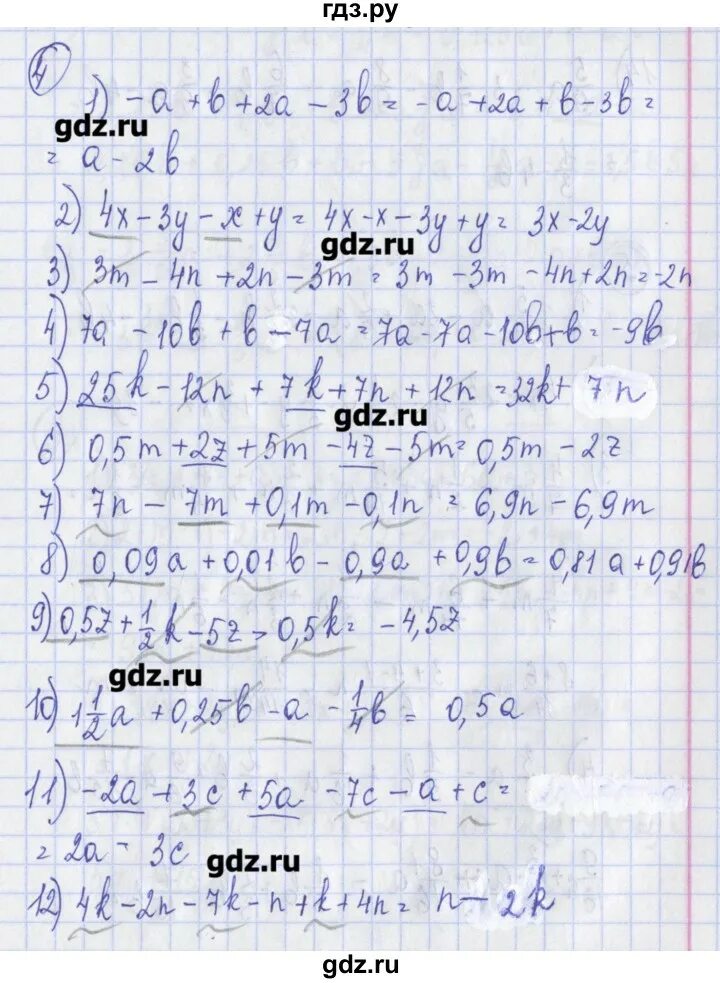 гдз.ру
4
1) -a + b + 2a - 3b = -a + 2a + b - 3b =
gdz.ru
= a - 2b
2) 4x - 3y - x + y = 4x - x - 3y + y = 3x - 2y
gdz.ru
3) 3m - 4n + 2n - 3m = 3m - 3m - 4n + 2n = -2n
4) 7a - 10b + b - 7a = 7a - 7a - 10b + b = -9b
5) 25k - 12n + 7k + 7n + 12n = 32k + 7n
gdz.ru
6) 0,5m + 2z + 5m - 4z - 5m = 0,5m - 2z
7) 7n - 7m + 0,1m - 0,1n = 6,9n - 6,9m
8) 0,09a + 0,01b - 0,9a + 0,9b = 0,81a + 0,91b
9) 0,5z + 1/2 k - 5z - 0,5k = -4,5z
gdz.ru
10) 1 1/2 a + 0,25b - a - 1/4 b = 0,5a
11) -2a + 3c + 5a - 7c - a + c =
= 2a - 3c
gdz.ru
12) 4k - 2n - 7k - n + k + 4n = n - 2k
gdz.ru